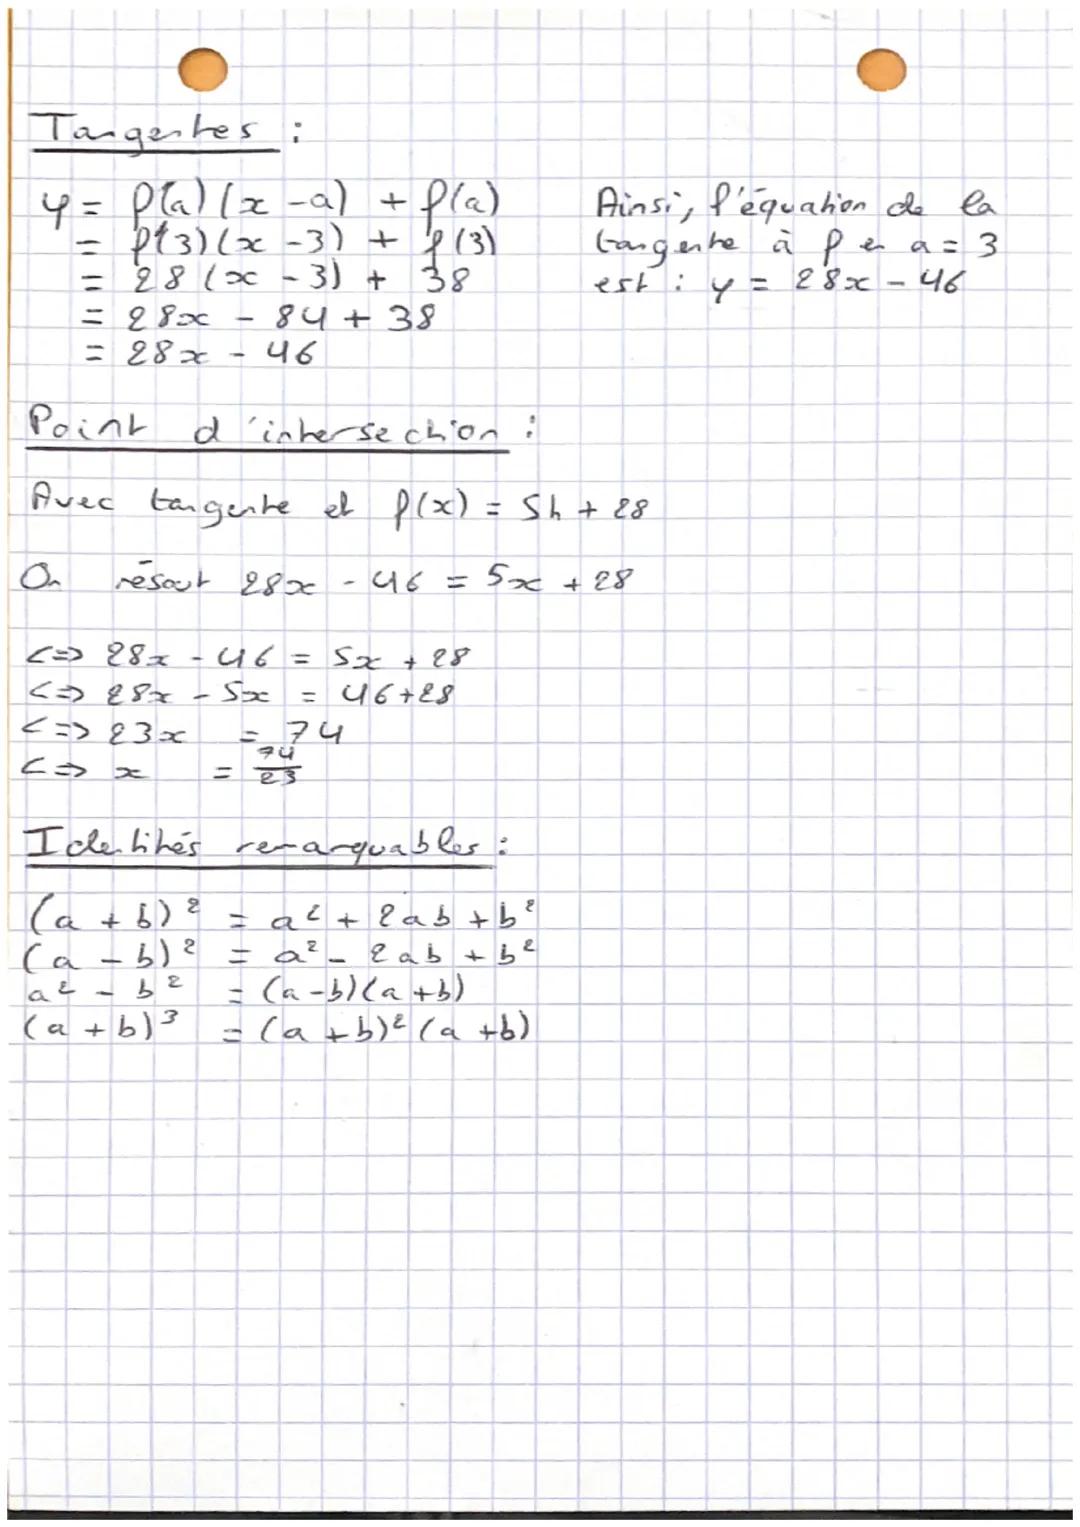 Tangentes :
y = f'(a) (x - a) + f(a)
= f'(3) (x - 3) + f(3)
= 28 (x - 3) + 38
= 28x - 84 + 38
= 28x - 46
Ainsi, l'équation de la
tangente à f en a = 3
est : y = 28x - 46
Point d'intersection :
Avec tangente et f(x) = 5h + 28
On résout 28x - 46 = 5x + 28
<=> 28x - 46 = 5x + 28
<=> 28x - 5x = 46 + 28
<=> 23x = 74
<=> x = 74/23
Identités remarquables :
(a + b)² = a² + 2ab + b²
(a - b)² = a² - 2ab + b²
a² - b² = (a - b) (a + b)
(a + b)³ = (a + b)² (a + b)